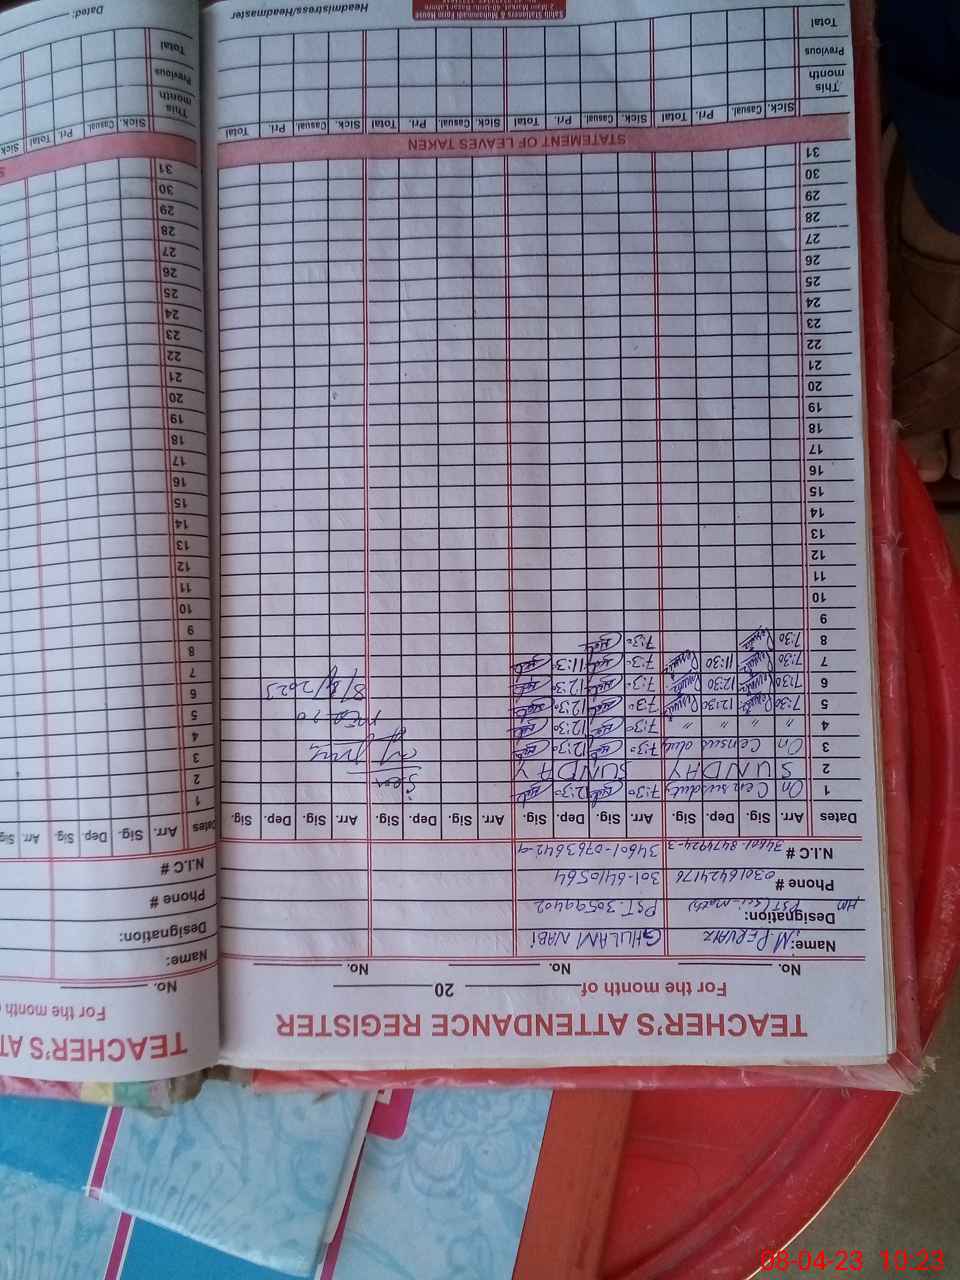 TEACHER'S ATTENDANCE REGISTER
For the month of 20
No. No. No.
Name: M. PERVAIZ GHULAM NABI
Designation: PST (Sci-math) PST. 30599402
HM
Phone # 03016424176 301-6410564
N.I.C # 34601-8474924-3 34601-0763642-9
Dates Arr. Sig. Dep. Sig. Arr. Sig. Dep. Sig. Arr. Sig. Dep. Sig. Arr. Sig. Dep. Sig.
1 On Census duty 7:30 12:30 Seen
2 SUNDAY SUNDAY
3 On Census duty 7:30 12:30
4 " " " " 7:30 12:30
5 7:30 12:30 7:30 12:30
6 7:30 12:30 7:30 12:30 8/4/2023
7 7:30 11:30 7:30 11:30
8 7:30 7:30
9
10
11
12
13
14
15
16
17
18
19
20
21
22
23
24
25
26
27
28
29
30
31
STATEMENT OF LEAVES TAKEN
Sick. Casual. Pri. Total Sick. Casual. Pri. Total Sick. Casual. Pri. Total Sick. Casual. Pri. Total
This month
Previous
Total
Headmistress/Headmaster
TEACHER'S AT
For the month
No.
Name:
Designation:
Phone #
N.I.C #
Dates Arr. Sig. Dep. Sig. Arr.
1
2
3
4
5
6
7
8
9
10
11
12
13
14
15
16
17
18
19
20
21
22
23
24
25
26
27
28
29
30
31
S
Sick. Casual. Pri. Total Sick.
This month
Previous
Total
Dated:
08-04-23 10:23